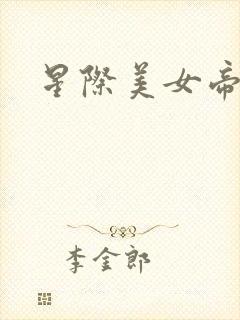 星際美女帝
李金郎